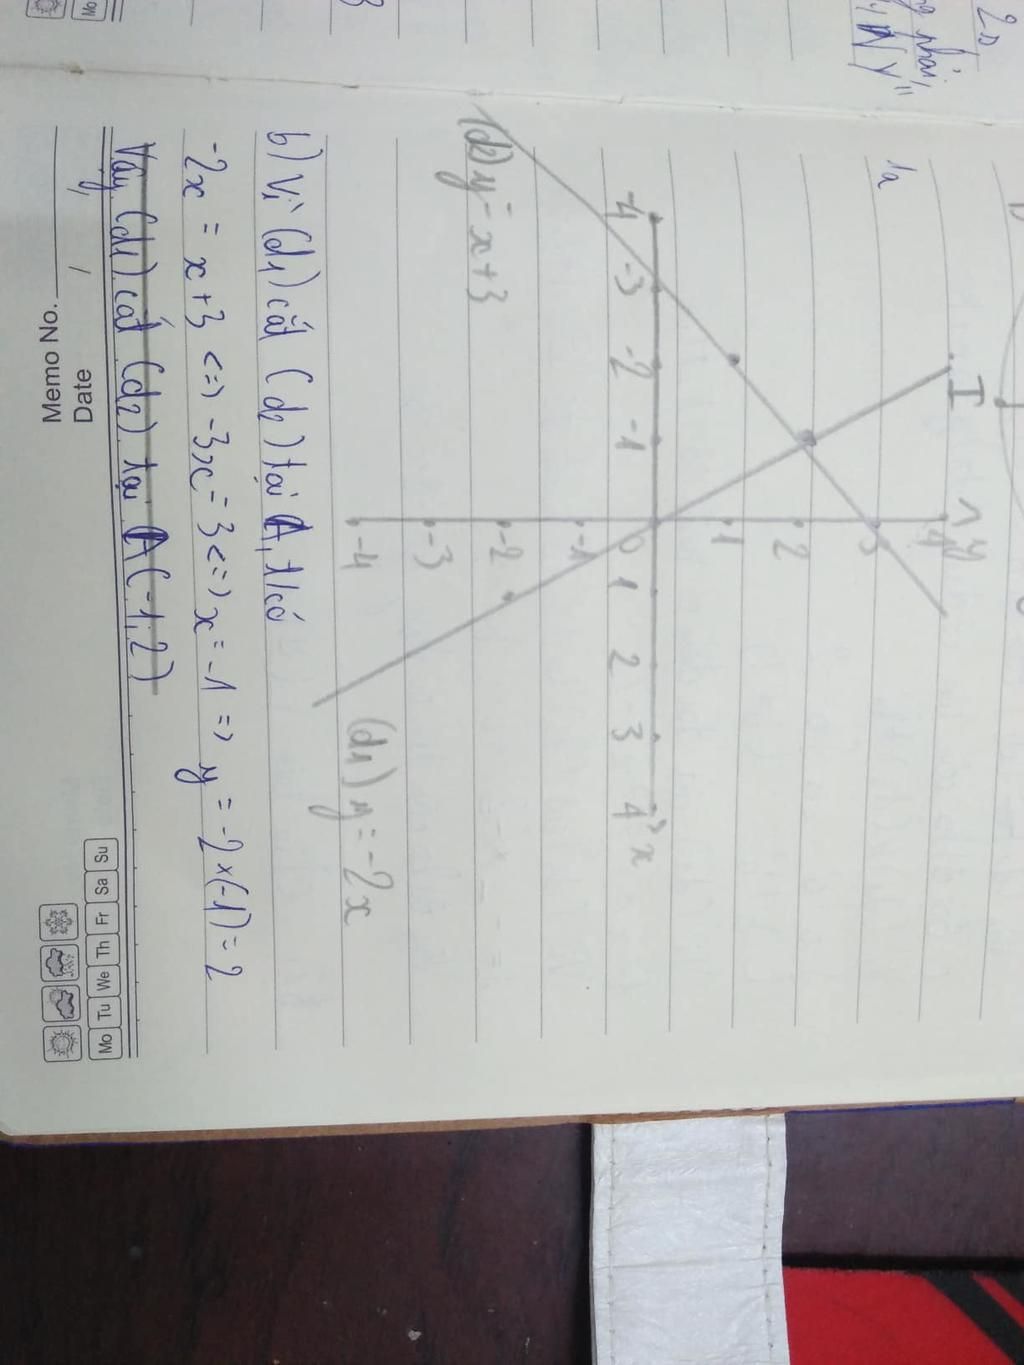 I
1a
y
4
3
2
1
-4 -3 -2 -1 0 1 2 3 4 x
-1
-2
-3
-4
(d2) y = x+3
(d1) y = -2x
b) Vì (d1) cắt (d2) tại A, ta có
-2x = x+3 <=> -3x = 3 <=> x = -1 => y = -2x(-1) = 2
Vậy (d1) cắt (d2) tại A(-1,2)
Memo No.
Date / /
Mo Tu We Th Fr Sa Su
Mo